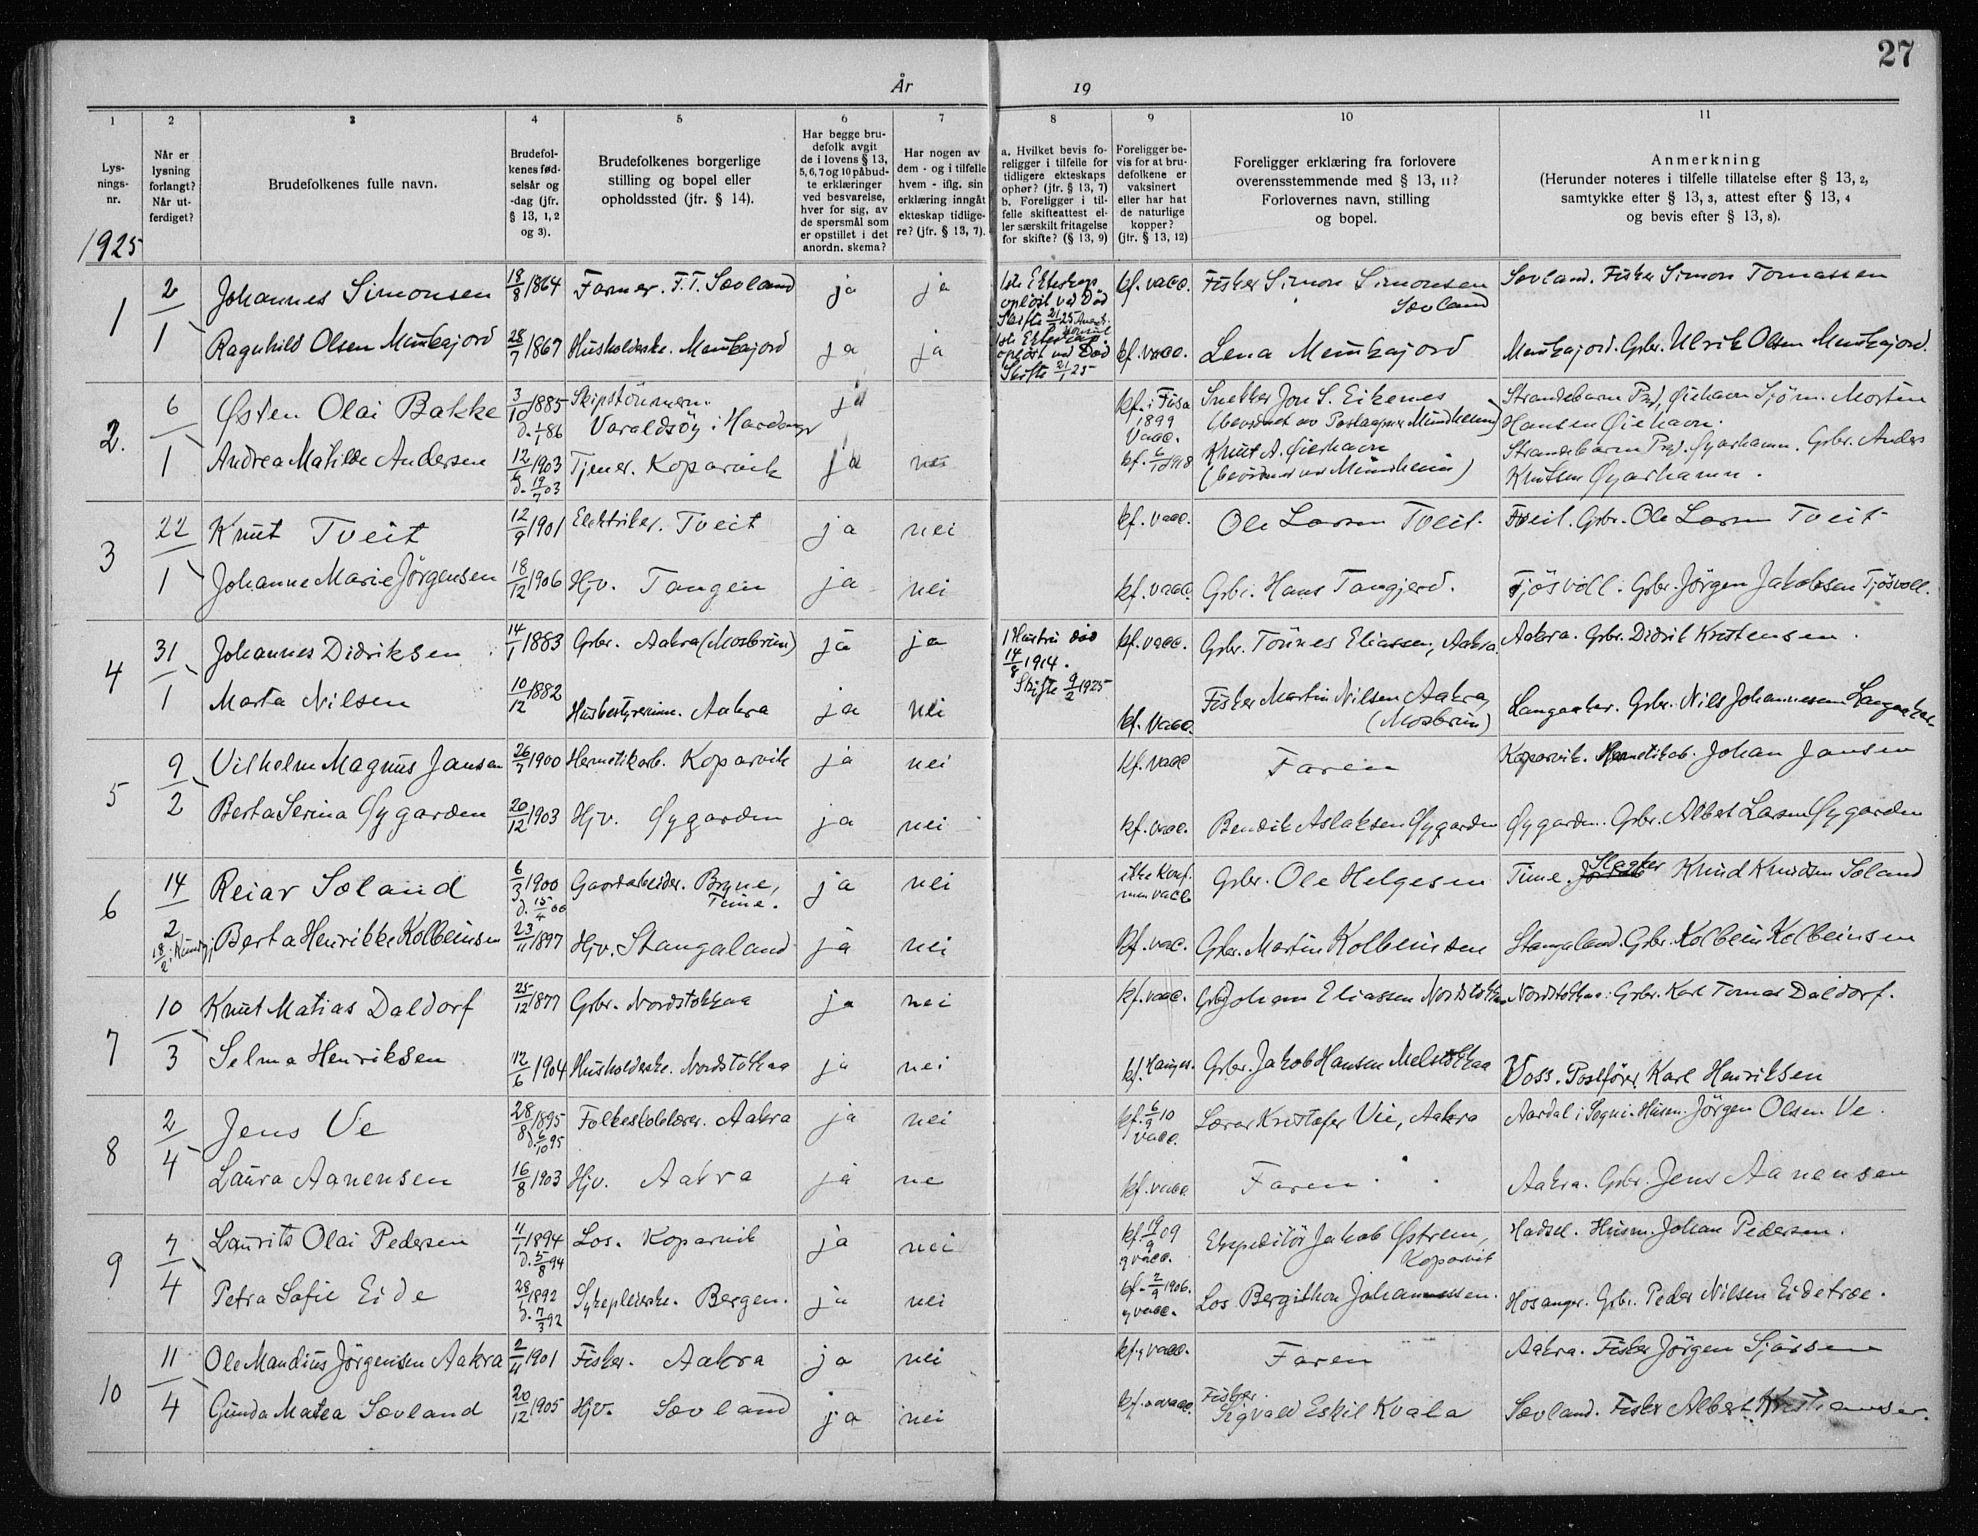 27
År 19
1 2 3 4 5 6 7 8 9 10 11
Lys-
nings-
nr.
Når er
lysning
forlangt?
Når ut-
ferdiget?
Brudefolkenes fulle navn.
Brudefol-
kenes fød-
selsår og
-dag (jfr.
§ 13, 1, 2
og 3).
Brudefolkenes borgerlige
stilling og bopel eller
opholdssted (jfr. § 14).
Har begge bru-
defolk avgit
de i lovens § 13,
5, 6, 7 og 10 påbud-
te erklæringer
ved besvarelse,
hver for sig, av
de spørsmål som
er opstillet i det
anordn. skema?
Har nogen av
dem - og i tilfelle
hvem - iflg. sin
erklæring inngåt
ekteskap tidlige-
re? (jfr. § 13, 7).
a. Hvilket bevis fo-
religger i tilfelle for
tidligere ekteskaps
ophør? (jfr. § 13, 7)
b. Foreligger i til-
felle skifteattest el-
ler særskilt fritagelse
for skifte? (§ 13, 9)
Foreligger be-
vis for at bru-
defolkene er
vaksinert
eller har hat
de naturlige
kopper?
(jfr. § 13, 12)
Foreligger erklæring fra forlovere
overensstemmende med § 13, 11?
Forlovernes navn, stilling
og bopel.
Anmerkning
(Herunder noteres i tilfelle tillatelse efter § 13, 2,
samtykke efter § 13, 3, attest efter § 13, 4
og bevis efter § 13, 8).
1925
1 2/1 Johannes Simonsen 18/8 1864 Farmer. F.T. Sævland ja ja 1ste Ekteskap opløst ved Død Skifte 21/1 25 kf. vacc. Fisker Simon Simonsen Sævland Sævland. Fisker Simon Tomassen
Ragnhild Olsen Munkajord 28/7 1867 Husholderske. Munkajord ja ja 1ste Ekteskap opløst ved Død Skifte 21/1 25 kf. vacc. Lena Munkajord Munkajord. Grbr. Ulrik Olsen Munkajord.
2. 6/1 Østen Olai Bakke 3/10 1885 d. 1/1 86 Skipstömmerm. Varaldsöy i Hardanger ja kf. i Fusa 1899 Vacc. Snekker Jon S. Eikenes (bevidnet av Postaapner Mundheim) Strandebarm Prgd, Øiehavn Sjöm. Morten Hansen Øiehavn.
Andrea Matilde Andersen 12/6 1903 d. 19/7 03 Tjener. Koparvik ja nei kf. 6/10 1918 Knut A. Øierhavn (bevidnet av Mundheim) Strandebarm Prgd. Øyarhamn. Grbr. Anders Knutsen Øyarhamn.
3 22/1 Knut Tveit 12/9 1901 Elektriker. Tveit ja nei kf. vacc. Ole Larsen Tveit. Tveit. Grbr. Ole Larsen Tveit
Johanne Marie Jörgensen 18/12 1906 Hjv. Tangen ja nei kf. vacc. Grbr. Hans Tangjerd. Tjösvoll. Grbr. Jörgen Jakobsen Tjösvoll.
4 31/1 Johannes Didriksen 14/1 1883 Grbr. Aakra (Mosbrun) ja ja 1 Hustru död 14/8 1914. Skifte 9/2 1925 kf. vacc. Grbr. Tönnes Eliassen, Aakra. Aakra. Grbr. Didrik Kristensen.
Marta Nilsen 10/12 1882 Husbestyrerinne. Aakra ja nei kf. vacc. Fisker Martin Nilsen Aakra (Mosbrun) Langaaker. Grbr. Nils Johannesen Langaaker
5 9/2 Vilhelm Magnus Jansen 26/7 1900 Hermetikarb. Koparvik ja nei kf. vacc Faren Koparvik. Hermetikarb. Johan Jansen
Berta Serina Øygarden 20/12 1903 Hjv. Øygarden ja nei kf. vacc. Bendik Aslaksen Øygarden Øygarden. Grbr. Albert Larsen Øygarden
6 14/2 Reiar Sæland 6/3 1900 d. 15/4 00 Gaardarbeider. Bryne, Time. ja nei ikke Konf. men vacc Grbr. Ole Helgesen Time. Slagter Knud Knudsen Sæland
18/2 Berta Henrikke Kolbeinsen 23/11 1897 Hjv. Stangaland ja nei kf. vac. Grbr. Martin Kolbeinsen Stangaland. Grbr. Kolbein Kolbeinsen
7 10/3 Knut Matias Daldorf 25/12 1877 Grbr. Nordstokkaa ja nei kf. vacc. Grbr Johan Eliassen Nordstokkaa Nordstokkaa. Grbr. Karl Tomas Daldorf.
Selma Henriksen 12/6 1904 Husholderske. Nordstokkaa ja nei Grbr. Jakob Hansen Melstokkaa Voss. Postfører Karl Henriksen
8 2/4 Jens Ve 28/8 1895 d. 6/10 95 Folkeskolelærer. Aakra ja nei kf. 6/9 10 vacc. Lærer Kristofer Vie, Aakra Aardal i Sogn. Husm. Jörgen Olsen Ve.
Laura Aanensen 16/8 1903 Hjv. Aakra ja ne kf. vacc Faren Aakra. Grbr. Jens Aanensen
9 7/4 Laurits Olai Pedersen 11/1 1894 d. 5/8 94 Los. Koparvik ja nei kf. 19/9 09 g vacc. Ekspeditör Jakob Østrem, Koparvik Hadsel. Husm. Johan Pedersen.
Petra Sofie Eide 28/1 1892 d. 7/3 92 Sykepleierske. Bergen. ja nei kf. 2/9 1906. g vacc. Los Bergithon Johannessen. Hosanger. Grbr. Peder Nilsen Eidetræe.
10 11/4 Ole Mandius Jörgensen Aakra 2/11 1901 Fisker. Aakra ja nei kf. g vacc. Faren Aakra. Fisker Jörgen Sjursen
Gunda Matea Sævland 20/12 1905 Hjv. Sævland ja nei kf. vacc. Fisker. Sigvald Eskil Kvala Sævland. Fisker Albert Kristiansen.